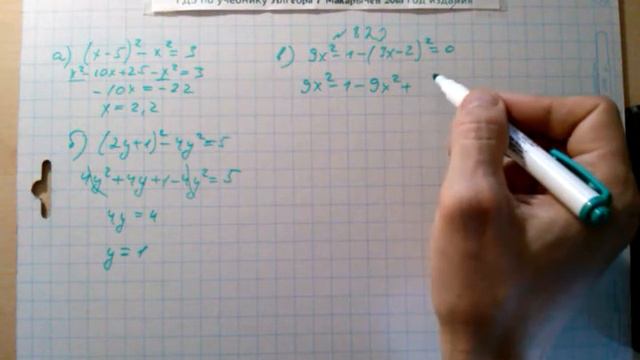 ГДЗ по учебнику Алгебра 7 Макарычев год издания
№ 822
а) (x-5)² - x² = 3
x² - 10x + 25 - x² = 3
- 10x = - 22
x = 2,2
б) (2y+1)² - 4y² = 5
4y² + 4y + 1 - 4y² = 5
4y = 4
y = 1
в) 9x² - 1 - (3x-2)² = 0
9x² - 1 - 9x² +